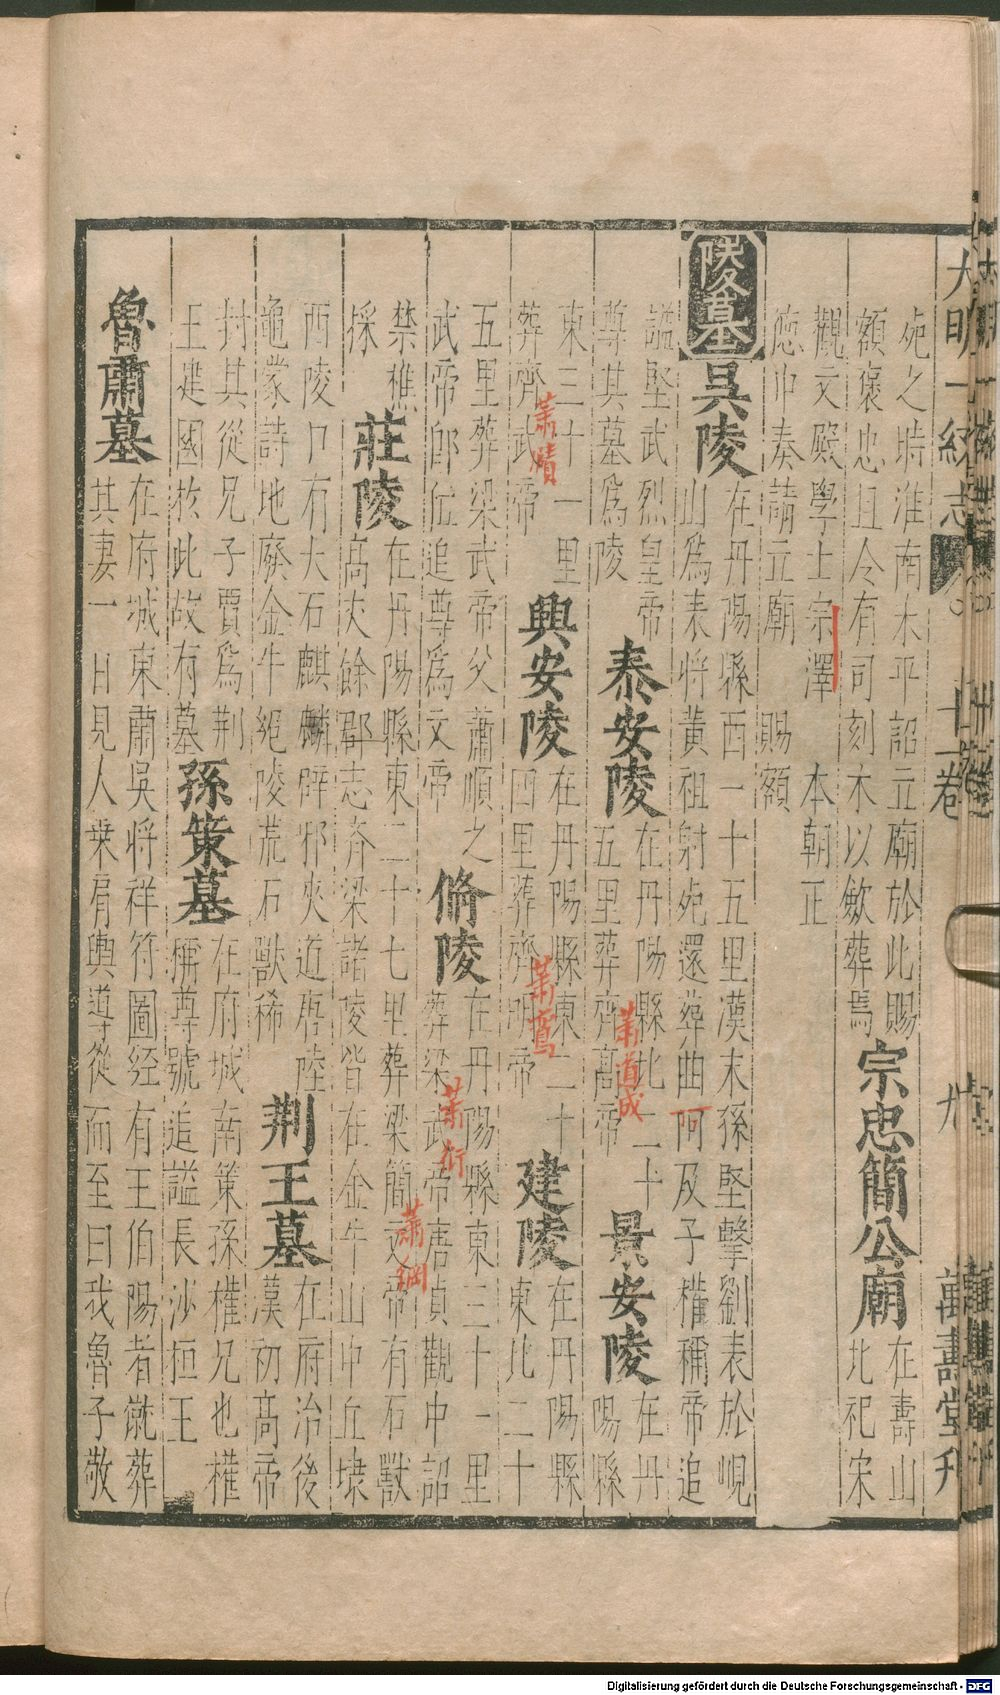 大明一統志 十一卷 九 萬壽堂刊
死之時淮南未平詔立廟於此賜
額褒忠且令有司刻木以歛葬焉
宗忠簡公廟
在壽山
北祀宋
觀文殿學士宗澤 本朝正
徳中奏請立廟 賜額
陵墓
吳陵
在丹陽縣西一十五里漢末孫堅擊劉表於峴
山為表将黄祖射死還葬曲阿及子權稱帝追
謚堅武烈皇帝
尊其墓為陵
泰安陵
在丹陽縣北二十
五里葬齊髙帝
蕭道成
景安陵
在丹
陽縣
東三十一里
葬齊武帝
蕭賾
興安陵
在丹陽縣東二十
四里葬齊明帝
蕭鸞
建陵
在丹陽縣
東北二十
五里葬梁武帝父蕭順之
武帝即位追尊為文帝
脩陵
在丹陽縣東三十一里
葬梁武帝唐貞觀中詔
蕭衍
禁樵
採
莊陵
在丹陽縣東二十七里葬梁簡文帝有石獸
髙丈餘郡志齊梁諸陵皆在金牛山中丘壊
蕭綱
西陵口有大石麒麟辟邪夾道唐陸
龜蒙詩地廢金牛絕陵荒石獸稀
荆王墓
在府治後
漢初髙帝
封其從兄子賈為荆
王建國於此故有墓
孫策墓
在府城南策孫權兄也權
稱尊號追謚長沙桓王
魯肅墓
在府城東肅吳将祥符圖經有王伯陽者就葬
其妻一日見人乗肩輿導從而至曰我魯子敬
Digitalisierung gefördert durch die Deutsche Forschungsgemeinschaft - DFG